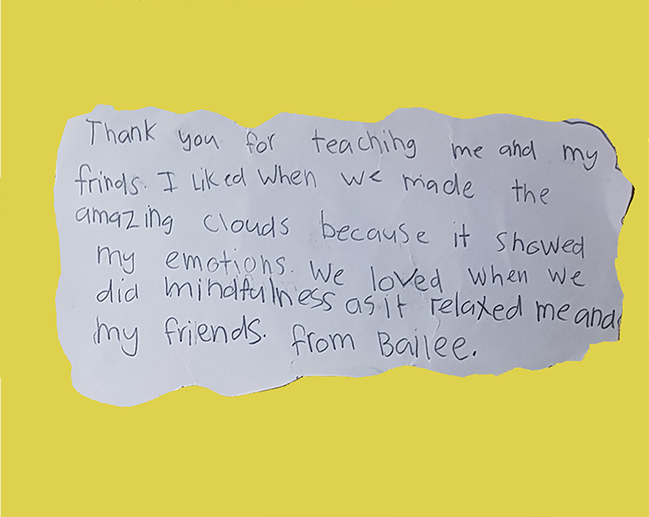 Thank you for teaching me and my
frinds. I Liked When we made the
amazing clouds because it showed
my emotions. We loved when we
did mindfulness as it relaxed me and
my friends. from Bailee.